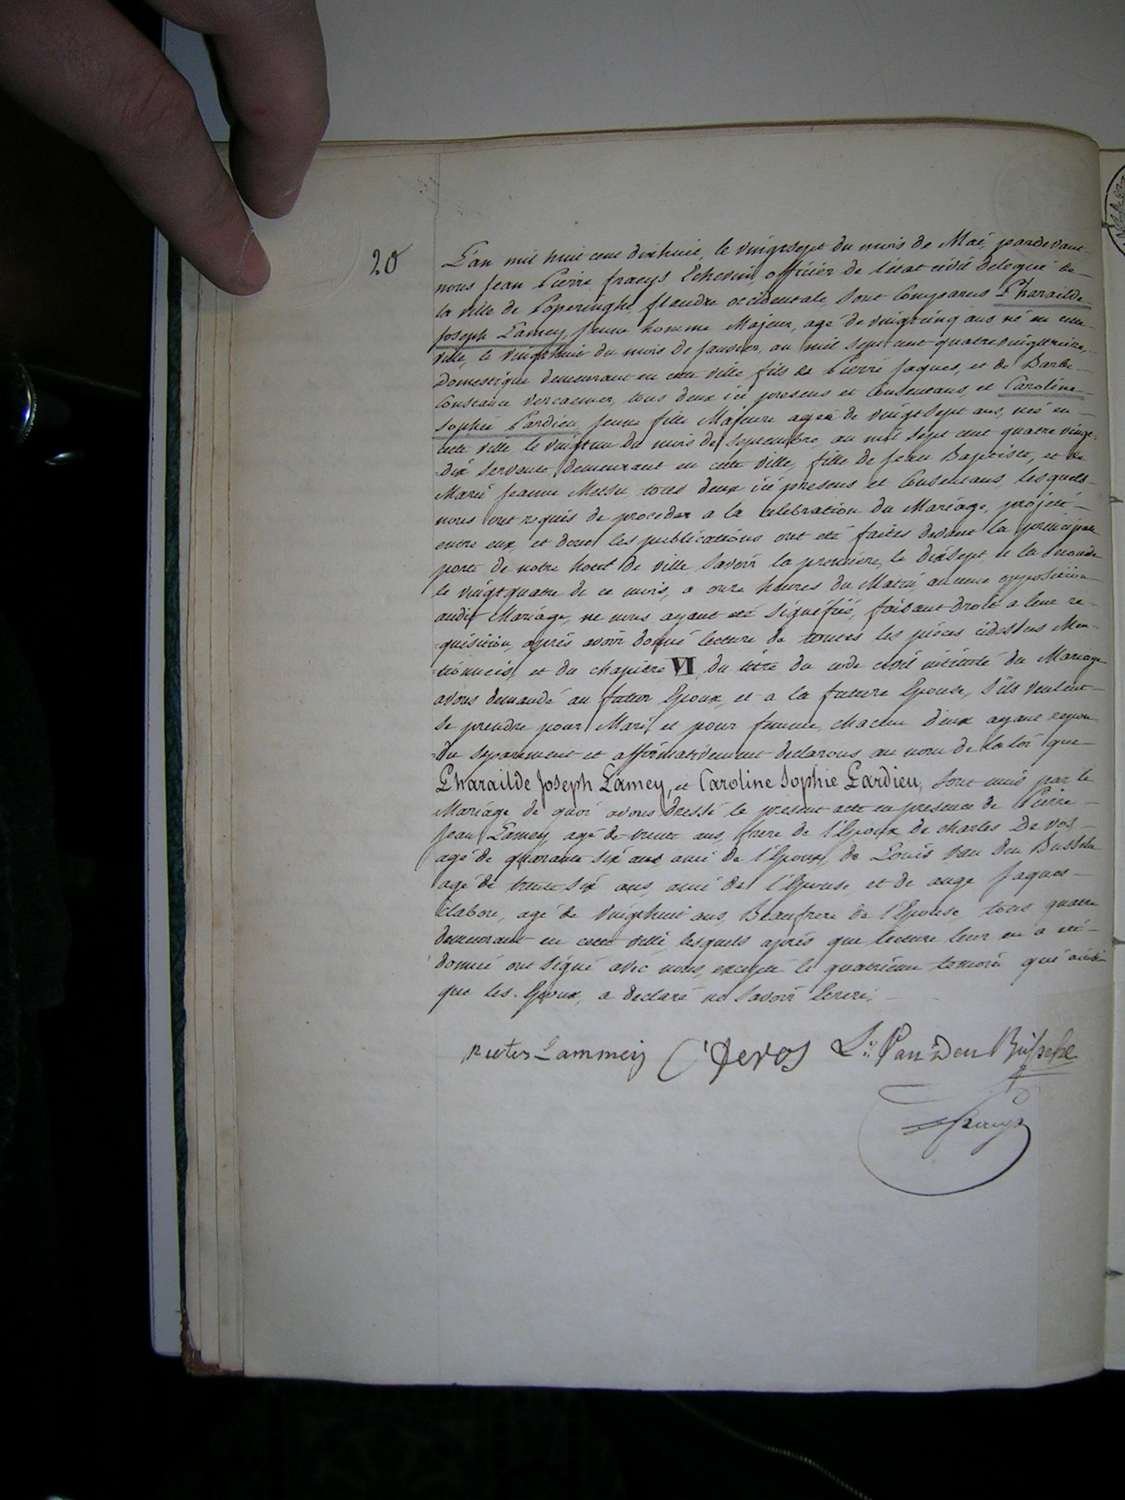 20
L'an mil huit cent dixhuit, le vingtsept du mois de Mai, pardevant
nous Jean Pierre fraeys Echevin, officier de l'état civil delegué de
la ville de Poperinghe, flandre occidentale sont Comparus Pharaïlde
Joseph Lamey, jeune homme Majeur, agé de vingtcinq ans né en cette
ville, le vingthuit du mois de Janvier, an mil sept cent quatre vingttreize,
domestique demeurant en cette ville, fils de Pierre Jaques, et de Barbe
Constance Vercaemer, tous deux ici presens et Consentans, et Caroline
Sophie Lardieu, jeune fille Majeure agée de vingtsept ans, née en
cette ville le vingt un du mois de Septembre an mil sept cent quatre vingt
dix servante, demeurant en cette ville, fille de Jean Baptiste, et de
Marie Jeanne Messu tous deux ici presens et Consentans, lesquels
nous ont requis de proceder a la celebration du Mariage, projeté
entre eux, et dont les publications ont été faites devant la principale
porte de notre hotel de ville, Savoir la premiere, le dixsept et la seconde
le vingtquatre de ce mois, a onze heures du Matin, aucune opposition
audit Mariage, ne nous ayant été signifiée, faisant droit a leur re-
quisition, après avoir donné lecture de toutes les pièces cidessus Men-
tionnées, et du chapitre VI du titre du code civil intitulé du Mariage
avons demandé au futur Epoux, et a la future Epouse, s'ils veulent
se prendre pour Mari et pour femme, chacun d'eux ayant repon-
du separement et affirmativement declarons au nom de la loi que
Pharaïlde Joseph Lamey, et Caroline Sophie Lardieu, sont unis par le
Mariage de quoi avons dressé le present acte en presence de Pierre
Jean Lamey, agé de trente ans, frere de l'Epoux de charles De vos
agé de quarante six ans ami de l'Epoux, de Louis Van den Bussche
agé de trente six ans ami de l'Epouse, et de ange Jaques
Clabou, agé de vingthuit ans, Beaufrere de l'Epouse, tous quatre
demeurant en cette ville lesquels après que lecture leur en a été
donnée ont signé avec nous, excepté le quatrieme temoin qui ainsi
que les Epoux, a declaré ne savoir Ecrire.
Pieter Lammeij C Devos L: Van Den Bussche
fraeys